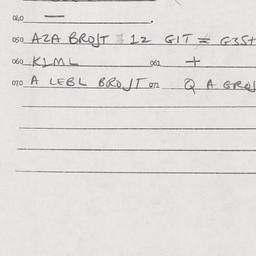 040 —
050 AZA BROST 12 GIT = G35+
060 K1ML 061 +
070 A LEBL BROST 072 Q A GROS